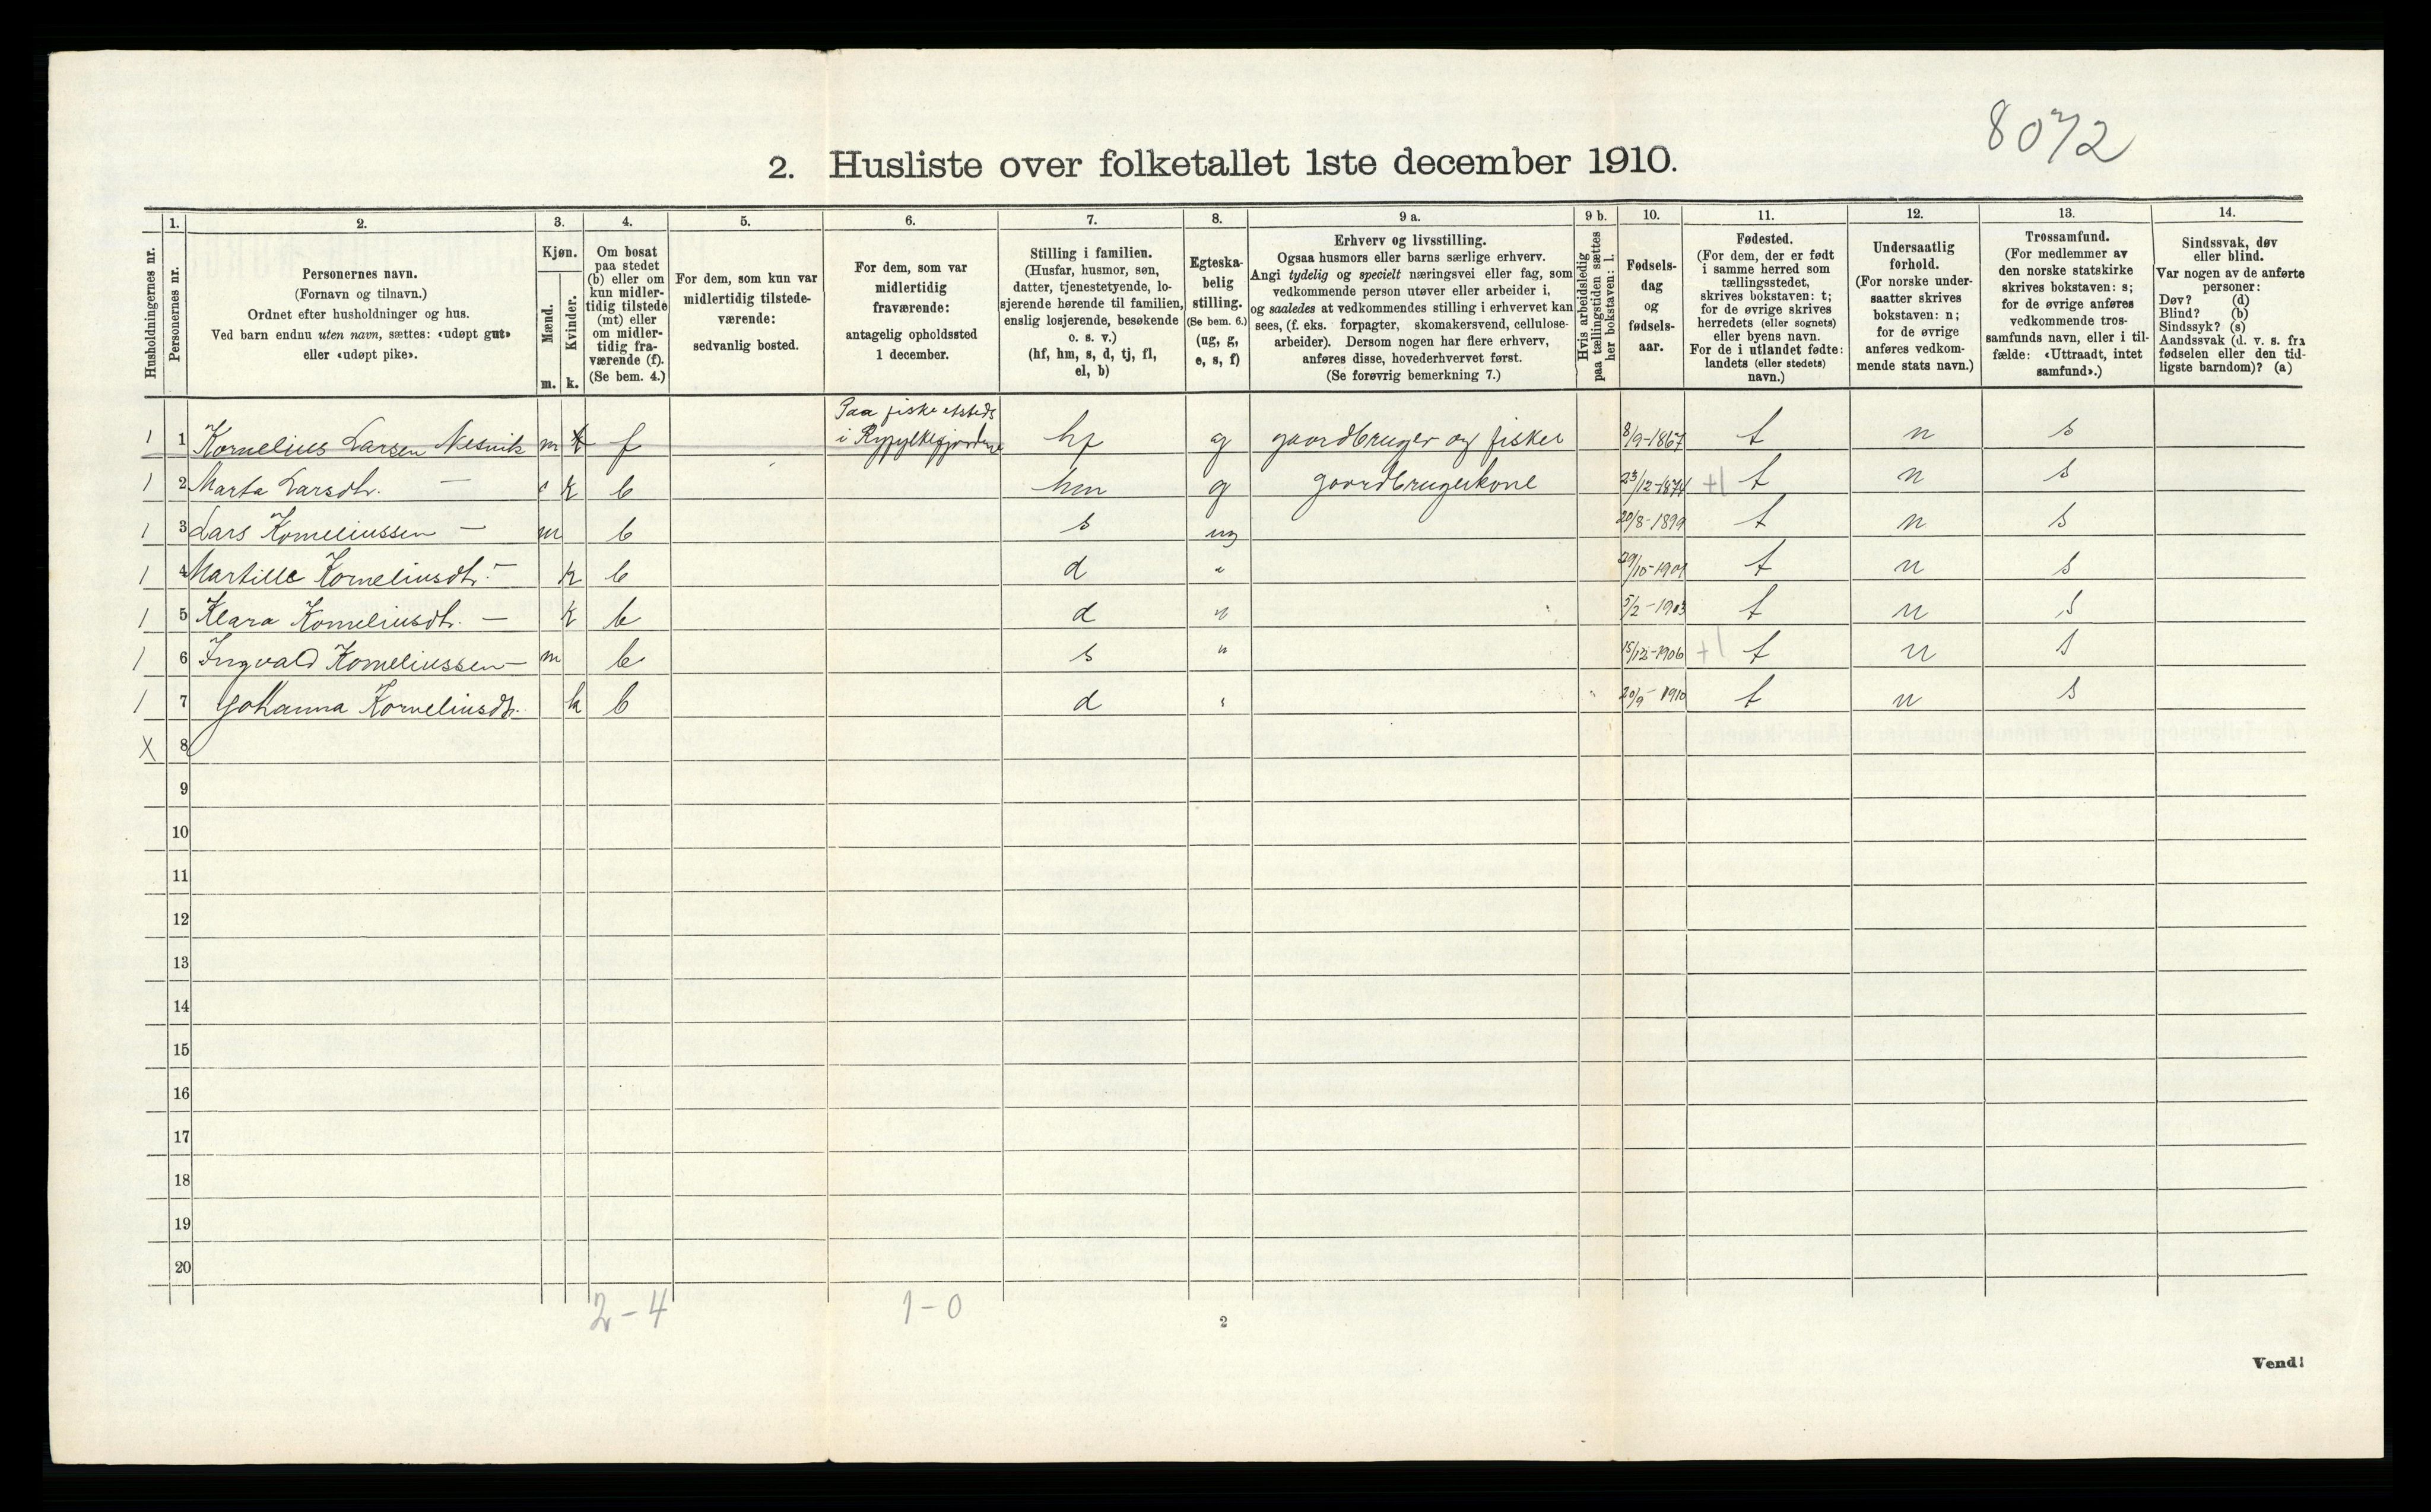 8072
2. Husliste over folketallet 1ste december 1910.
Husholdningernes nr.
1.
Personernes nr.
2.
Personernes navn.
(Fornavn og tilnavn.)
Ordnet efter husholdninger og hus.
Ved barn endnu uten navn, sættes: «udøpt gut»
eller «udøpt pike».
3.
Kjøn.
Mænd.
Kvinder.
m. k.
4.
Om bosat
paa stedet
(b) eller om
kun midler-
tidig tilstede
(mt) eller
om midler-
tidig fra-
værende (f).
(Se bem. 4.)
5.
For dem, som kun var
midlertidig tilstede-
værende:
sedvanlig bosted.
6.
For dem, som var
midlertidig
fraværende:
antagelig opholdssted
1 december.
7.
Stilling i familien.
(Husfar, husmor, søn,
datter, tjenestetyende, lo-
sjerende hørende til familien,
enslig losjerende, besøkende
o. s. v.)
(hf, hm, s, d, tj, fl,
el, b)
8.
Egteska-
belig
stilling.
(Se bem. 6.)
(ug, g,
e, s, f)
9 a.
Erhverv og livsstilling.
Ogsaa husmors eller barns særlige erhverv.
Angi tydelig og specielt næringsvei eller fag, som
vedkommende person utøver eller arbeider i,
og saaledes at vedkommendes stilling i erhvervet kan
sees, (f. eks. forpagter, skomakersvend, cellulose-
arbeider). Dersom nogen har flere erhverv,
anføres disse, hovederhvervet først.
(Se forøvrig bemerkning 7.)
9 b.
Hvis arbeidsledig
paa tællingstiden sættes
her bokstaven: l.
10.
Fødsels-
dag
og
fødsels-
aar.
11.
Fødested.
(For dem, der er født
i samme herred som
tællingsstedet,
skrives bokstaven: t;
for de øvrige skrives
herredets (eller sognets)
eller byens navn.
For de i utlandet fødte:
landets (eller stedets)
navn.)
12.
Undersaatlig
forhold.
(For norske under-
saatter skrives
bokstaven: n;
for de øvrige
anføres vedkom-
mende stats navn.)
13.
Trossamfund.
(For medlemmer av
den norske statskirke
skrives bokstaven: s;
for de øvrige anføres
vedkommende tros-
samfunds navn, eller i til-
fælde: «Uttraadt, intet
samfund».)
14.
Sindssvak, døv
eller blind.
Var nogen av de anførte
personer:
Døv? (d)
Blind? (b)
Sindssyk? (s)
Aandssvak (d. v. s. fra
fødselen eller den tid-
ligste barndom)? (a)
Paa fiske etsteds
1 1 Kornelius Larsen Nesvik m f i Ryfylkefjordene hf g gaardbruger og fisker 8/9-1867 t n s
1 2 Marta Larsdtr. — k b hm g gaardbrugerkone 23/12-1874 +1 t n s
1 3 Lars Korneliussen — m b s ug 20/8-1899 t n s
1 4 Martille Korneliusdtr. — k b d " 29/10-1901 t n s
1 5 Klara Korneliusdtr. — k b d " 5/2-1903 t n s
1 6 Ingvald Korneliussen — m b s " 15/12-1906 +1 t n s
1 7 Johanna Korneliusdtr. k b d " 20/9-1910 t n s
X 8
9
10
11
12
13
14
15
16
17
18
19
20
2-4 1-0
2
Vend!